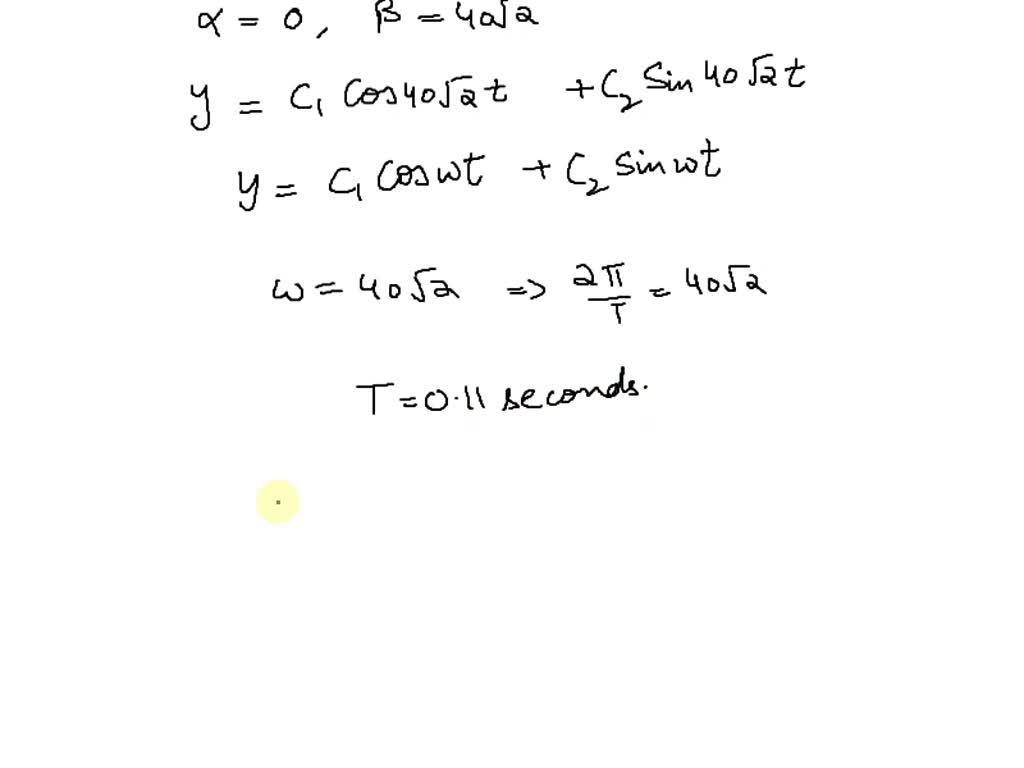 α = 0, β = 40√2
y = C₁ Cos40√2t + C₂ Sin40√2t
y = C₁ Cosωt + C₂ Sinωt
ω = 40√2 => 2π/T = 40√2
T = 0.11 seconds.